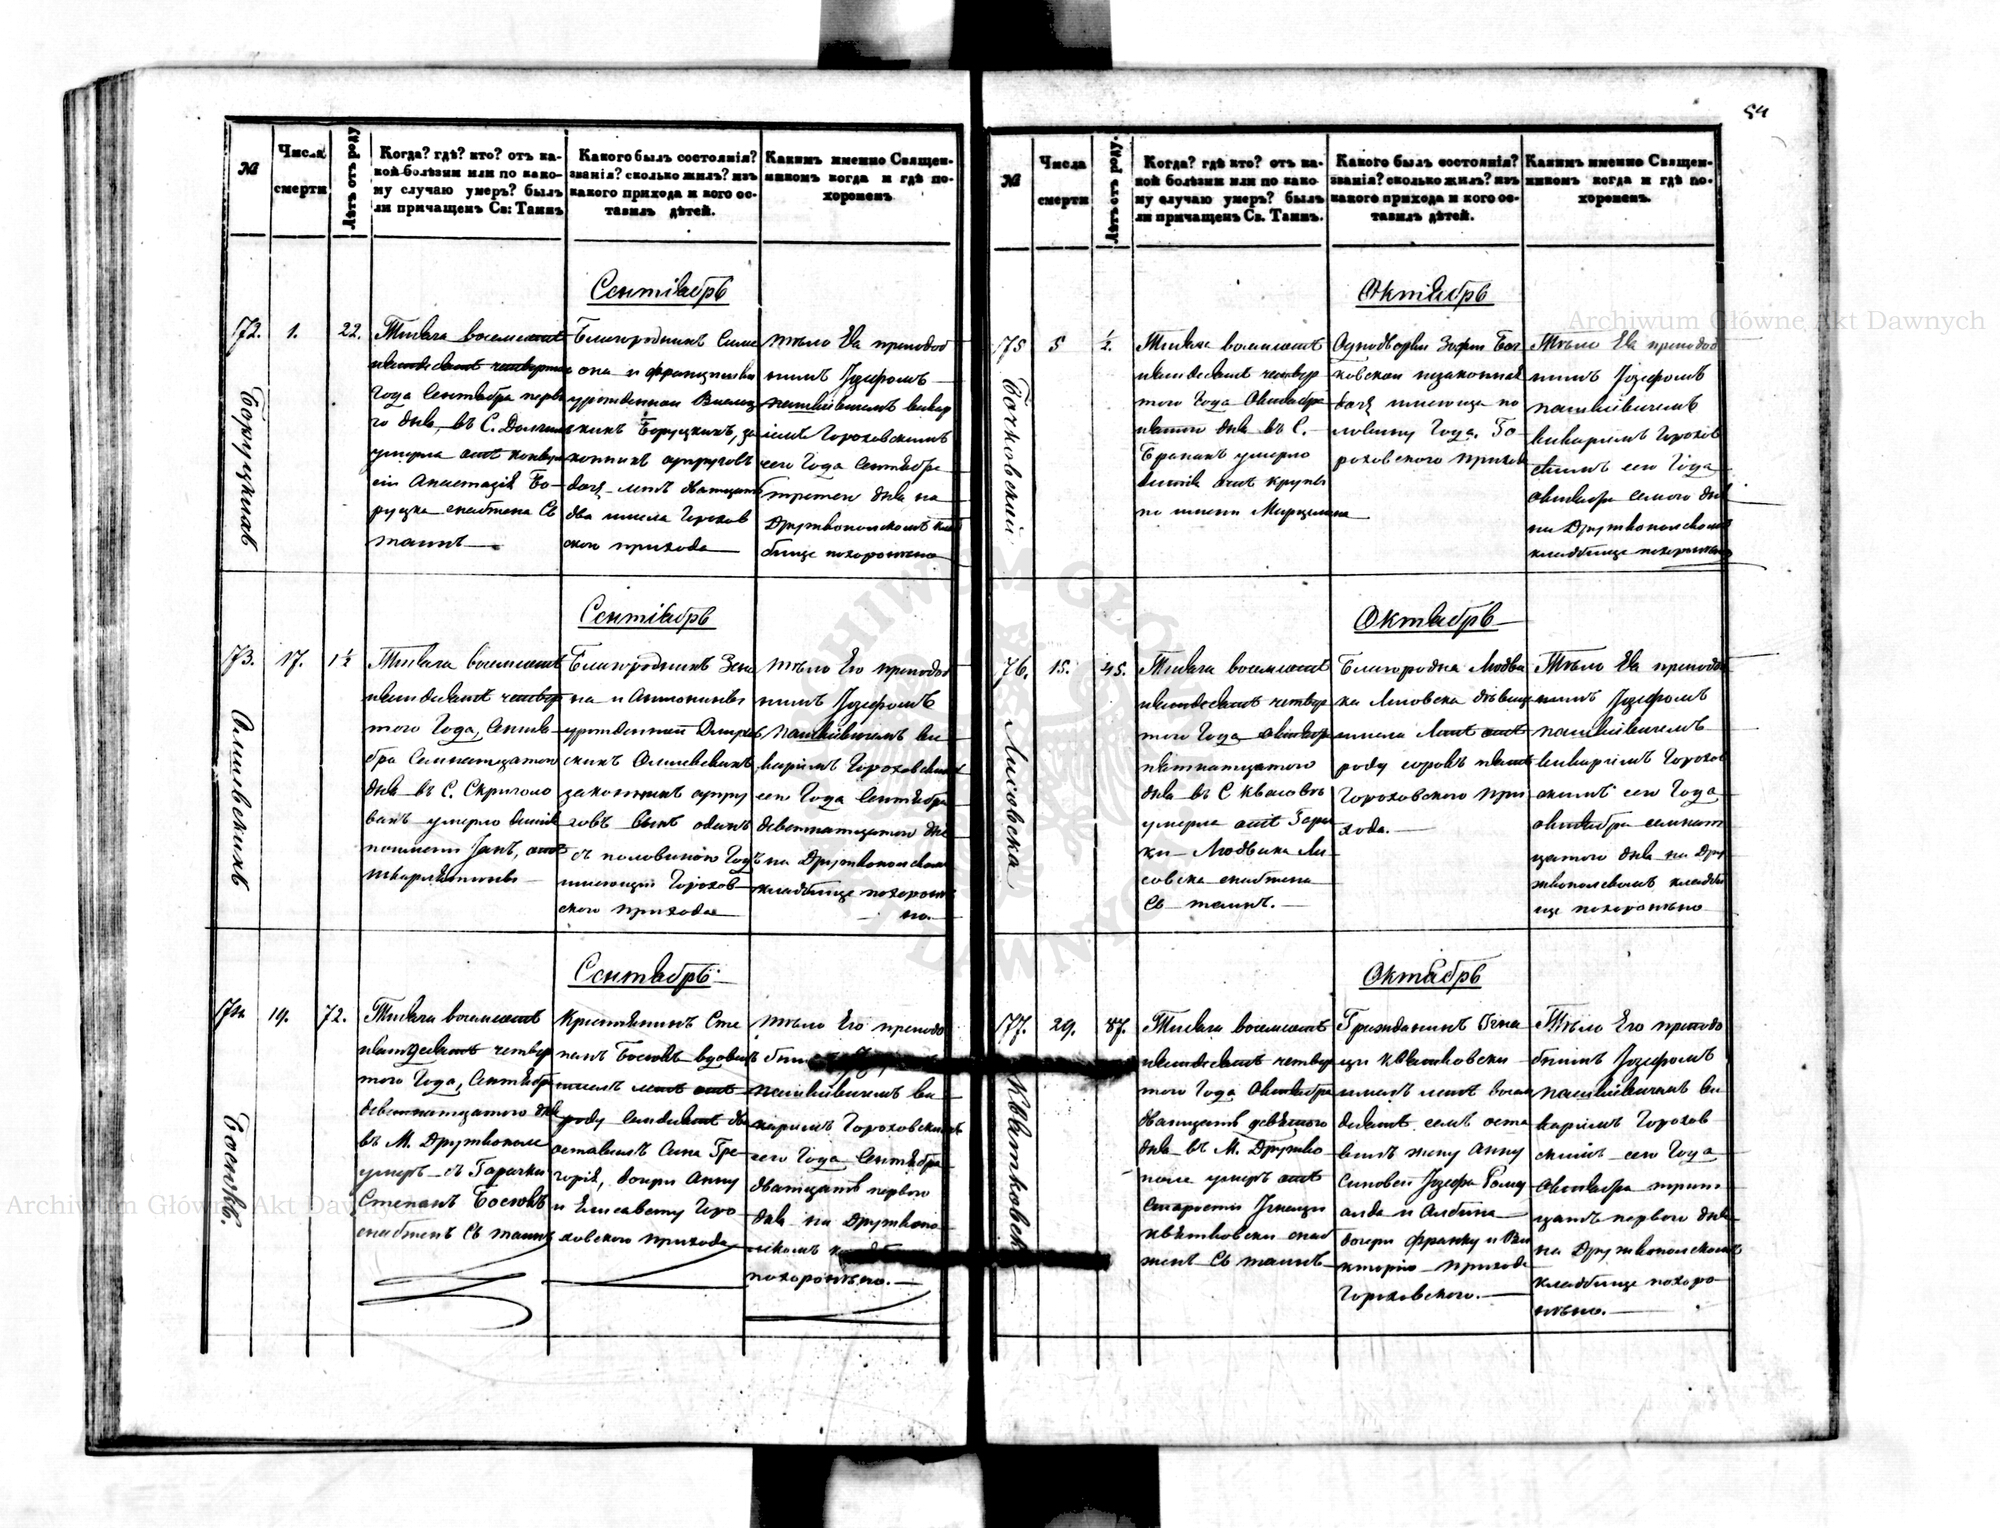 54
№
Числа
смерти
Лѣтъ отъ роду
Когда? гдѣ? кто? отъ ка-
кой болѣзни или по како-
му случаю умеръ? былъ
ли причащенъ Св: Таинъ
Какого былъ состоянія?
званія? сколько жилъ? изъ
какого прихода и кого ос-
тавилъ дѣтей.
Какимъ именно Священ-
никомъ когда и гдѣ по-
хороненъ
Сентіабрь
72.
1.
22.
Боруцкихъ
Тысяча восемсотъ
пятдесятъ четвертаго
года Сентября перва
го дня, въ С.
умерла отъ
Анастазія Бо-
руцка снабжена Св
таинъ
Благородныхъ Симе
она и Францишки
урожденной
Боруцкихъ, за
конныхъ супруговъ
дочь лѣтъ двадцать
два имѣла Горохов
скаго прихода
тѣло Ея преподоб
нымъ Іозефомъ
викар
іемъ Гороховскимъ
сего Года Сентября
третего дня на
Дружкопольскомъ клад
бище похоронено
Сентіабрь
73.
17.
1½
Олишевскихъ
Тысяча восемсотъ
пятдесятъ четвер
того Года, Сентя
бря Семнатцатого
дня въ С. Скриголо
вахъ умерло дитя
по имени Янъ, отъ
шкарлятины
Благородныхъ Зено
на и Антонины
урожденной
скихъ Олишевскихъ
законныхъ супру
говъ Сынъ одинъ
съ половиною Годъ
имеющій Горохов
ского прихода
тѣло Его преподоб
нымъ Іозефомъ
ви
каріемъ Гороховскимъ
сего Года Сентября
девятнатцатого дня
на Дружкопольскомъ
кладбище похороне
но.
Сентябрь
74
19.
72.
Босюкъ.
Тысяча восемсотъ
пятдесятъ четвер
того Года, Сентября
девятнатцатого дня
въ М. Дружкополе
умеръ съ Горячки
Степанъ Босюкъ
снабженъ Св таинъ
Крестьянинъ Сте
панъ Босюкъ вдовецъ
имелъ летъ отъ
роду Семдесятъ два
оставилъ Сына Гре-
горія, дочери Анну
и Елисавету Горо
ховского прихода
тѣло Его преподо
бнымъ
ви
каріемъ Гороховскимъ
сего Года Сентября
дватцать первого
дня на Дружкопо
похоронено.
№
Числа
смерти
Лѣтъ отъ роду.
Когда? гдѣ? кто? отъ ка-
кой болѣзни или по како-
му случаю умеръ? былъ
ли причащенъ Св. Таинъ.
Какого былъ состоянія?
званія? сколько жилъ? изъ
какого прихода и кого ос-
тавилъ дѣтей.
Какимъ именно Священ-
никомъ когда и гдѣ по-
хороненъ.
Октіабрь
75
5
½.
Бочковскій
Тысяча восемсотъ
пятдесятъ четвер
того Года Октября
пятого дня въ С.
Бранахъ умерло
дитя отъ крупы
по имени Марцелина
Однодворки Зофіи Боч
ковской незаконная
дочь имеюща по
ловину Года. Го-
роховского прихода
Тѣло Ея преподоб
нымъ Іозефомъ
викаріемъ Горохов
скимъ сего Года
октября семого дня
на Дружкопольскомъ
кладбище похоронено
Октябрь
76.
15.
45.
Лисовска
Тысяча восемсотъ
пятдесятъ четвер
того Года октября
пятнатцатого
дня въ С Квасовѣ
умерла отъ Горя
чки Людвика Ли
совска снабжена
Св таинъ.
Благородна Людви
ка Лисовска дѣвица
имела Летъ отъ
роду сорокъ пять
Гороховского при
хода.
Тѣло Ея преподоб
нымъ Іозефомъ
викаріемъ Горохов
скимъ сего Года
октября семнат
цатого дня на Дру
жкопольскомъ кладби
ще похоронено
Октябрь
77.
29.
87.
Квятковскій
Тысяча восемсотъ
пятдесятъ четвер
того Года Октября
дватцать девятого
дня въ М. Дружко
поле умеръ отъ
старости Игнаци
Квятковски снаб
женъ Св таинъ
Гражданинъ Игна
ци Квятковски
имелъ летъ восем
десятъ семь оста
вилъ жену Анну
Сыновей Іозефа Рому
алда и Албина
дочери Франку и Ви
кторію прихода
Гороховского.
Тѣло Его преподо
бнымъ Іозефомъ
ви
каріемъ Горохов
скимъ сего Года
Октября трит
цать первого дня
на Дружкопольскомъ
кладбище похоро
нено.
Archiwum Główne Akt Dawnych
Archiwum Główne Akt Dawnych